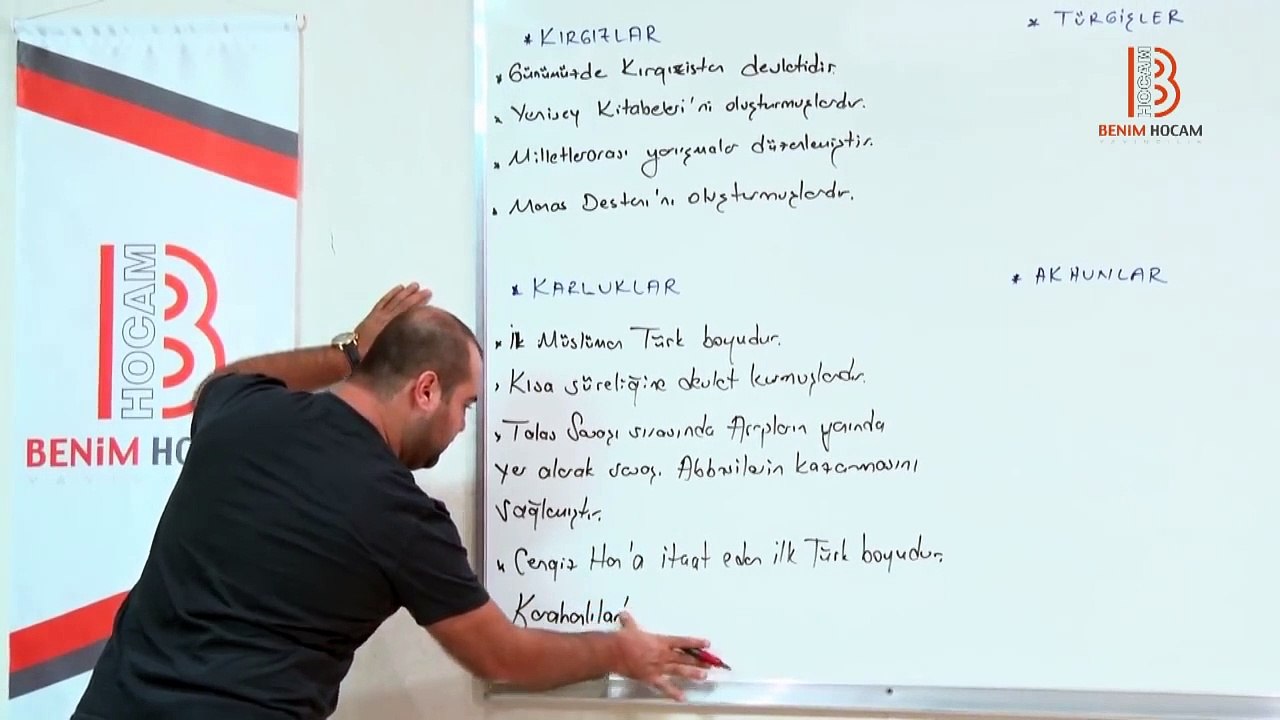 * KIRGIZLAR
* Günümüzde Kırgızistan devletidir.
* Yenisey Kitabeleri'ni oluşturmuşlardır.
* Milletlerarası yarışmalar düzenlemiştir.
* Manas Destanı'nı oluşturmuşlardır.
* KARLUKLAR
* İlk Müslüman Türk boyudur.
* Kısa süreliğine devlet kurmuşlardır.
* Talas Savaşı sırasında Arapların yanında
yer alarak savaşı Abbasilerin kazanmasını
sağlamıştır.
* Cengiz Han'a itaat eden ilk Türk boyudur.
Karahanlılar'
* TÜRGİŞLER
* AK HUNLAR
HOCAM B
BENİM HOCAM
YAYINCILIK
HOCAM B
BENİM HO